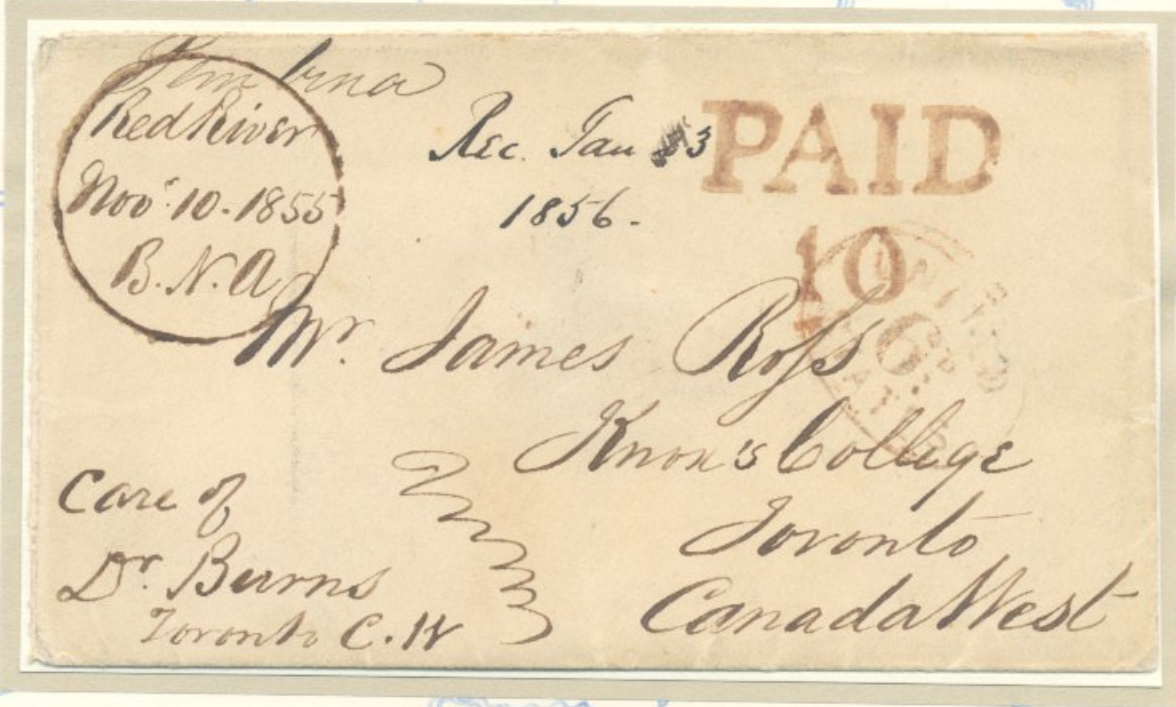 Pembina
Red River
Nov.r 10. 1855
B. N. A
Rec. Jan 3
1856.
PAID
10
UNITED
6D
STATES
Mr. James Ross
Knox's College
Toronto
Canada West
Care of
Dr. Burns
Toronto C. W